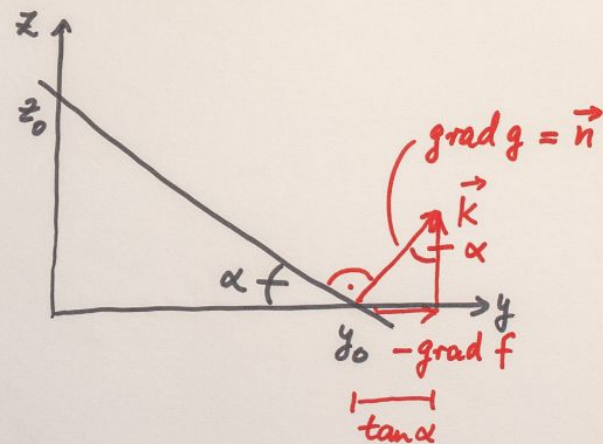 z
z₀
grad g = n⃗
k⃗
α
α
y
y₀
-grad f
tan α